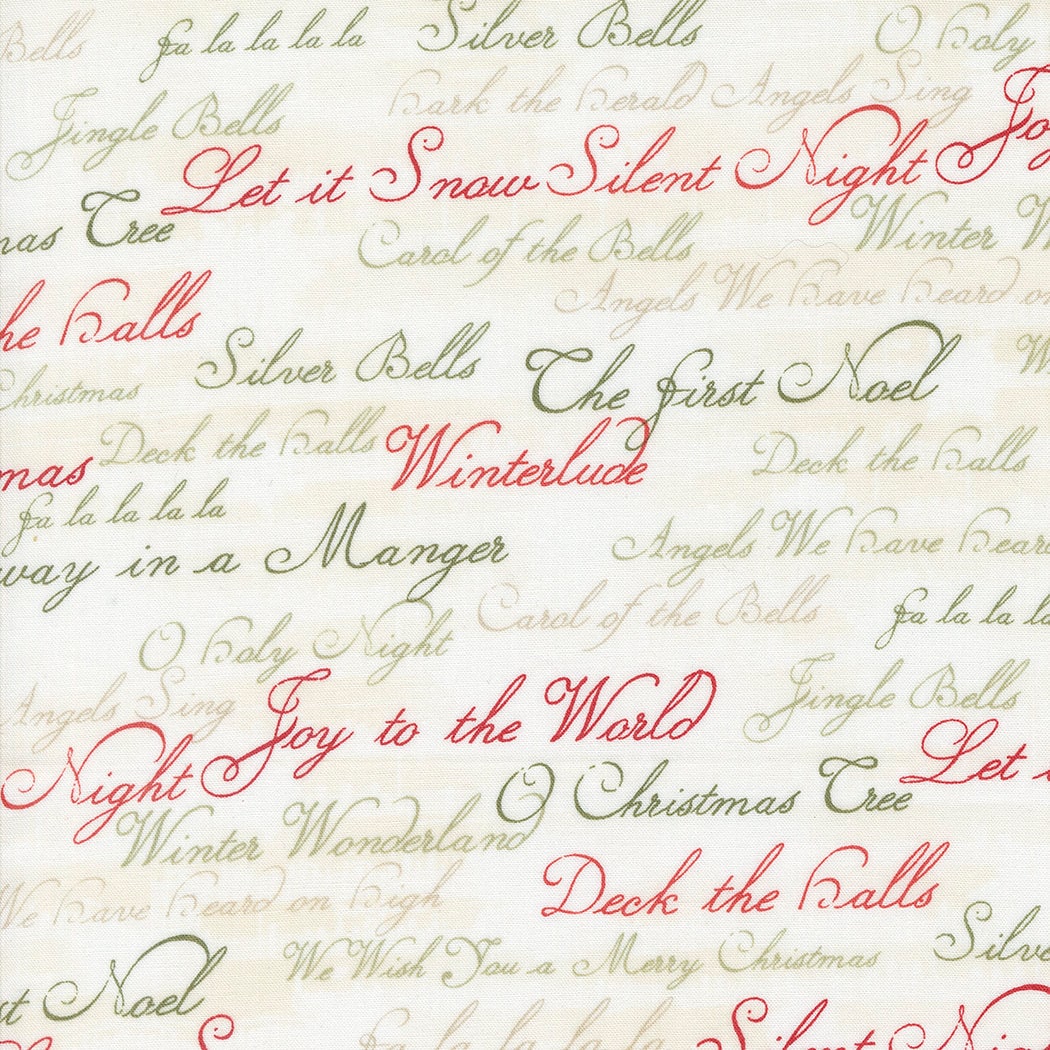 Bells fa la la la la Silver Bells O holy
Hark the herald Angels Sing
Jingle Bells Joy
Let it Snow Silent Night
mas Tree Winter W
Carol of the Bells
Angels We have heard on
he halls
Silver Bells The first Noel
Christmas
Deck the halls Winterlude Deck the halls
mas
fa la la la la
way in a Manger Angels We have heard
Carol of the Bells fa la la la
O holy Night
Angels Sing Jingle Bells
Joy to the World
Night Let i
O Christmas Tree
Winter Wonderland
Deck the halls
We have heard on high
We Wish You a Merry Christmas Silve
st Noel
fa la la la la Silent Nigh